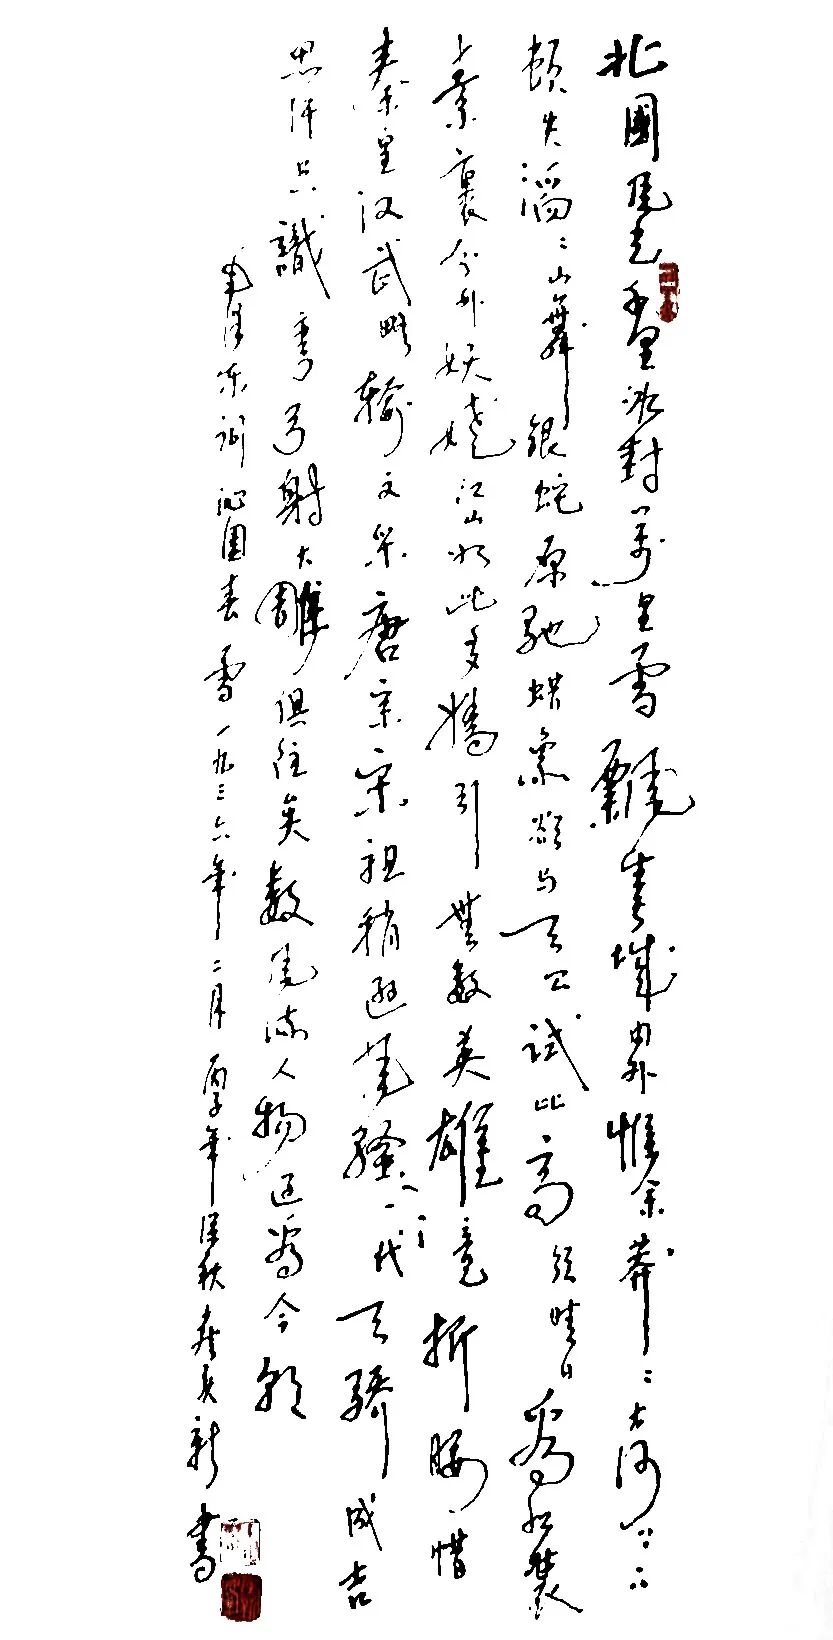 北國風光千里冰封萬里雪飄長城內外惟余莽〻大河上下
頓失滔〻山舞銀蛇原馳蜡象欲与天公試比高須晴日看紅裝
素裹分外妖嬈江山如此多嬌引無數英雄竞折腰惜
秦皇汉武略輸文采唐宗宋祖稍遜風騷一代天驕成吉
思汗只識弯弓射大雕俱往矣數風流人物还看今朝
毛泽东詞沁園春雪一九三六年二月年深秋新書